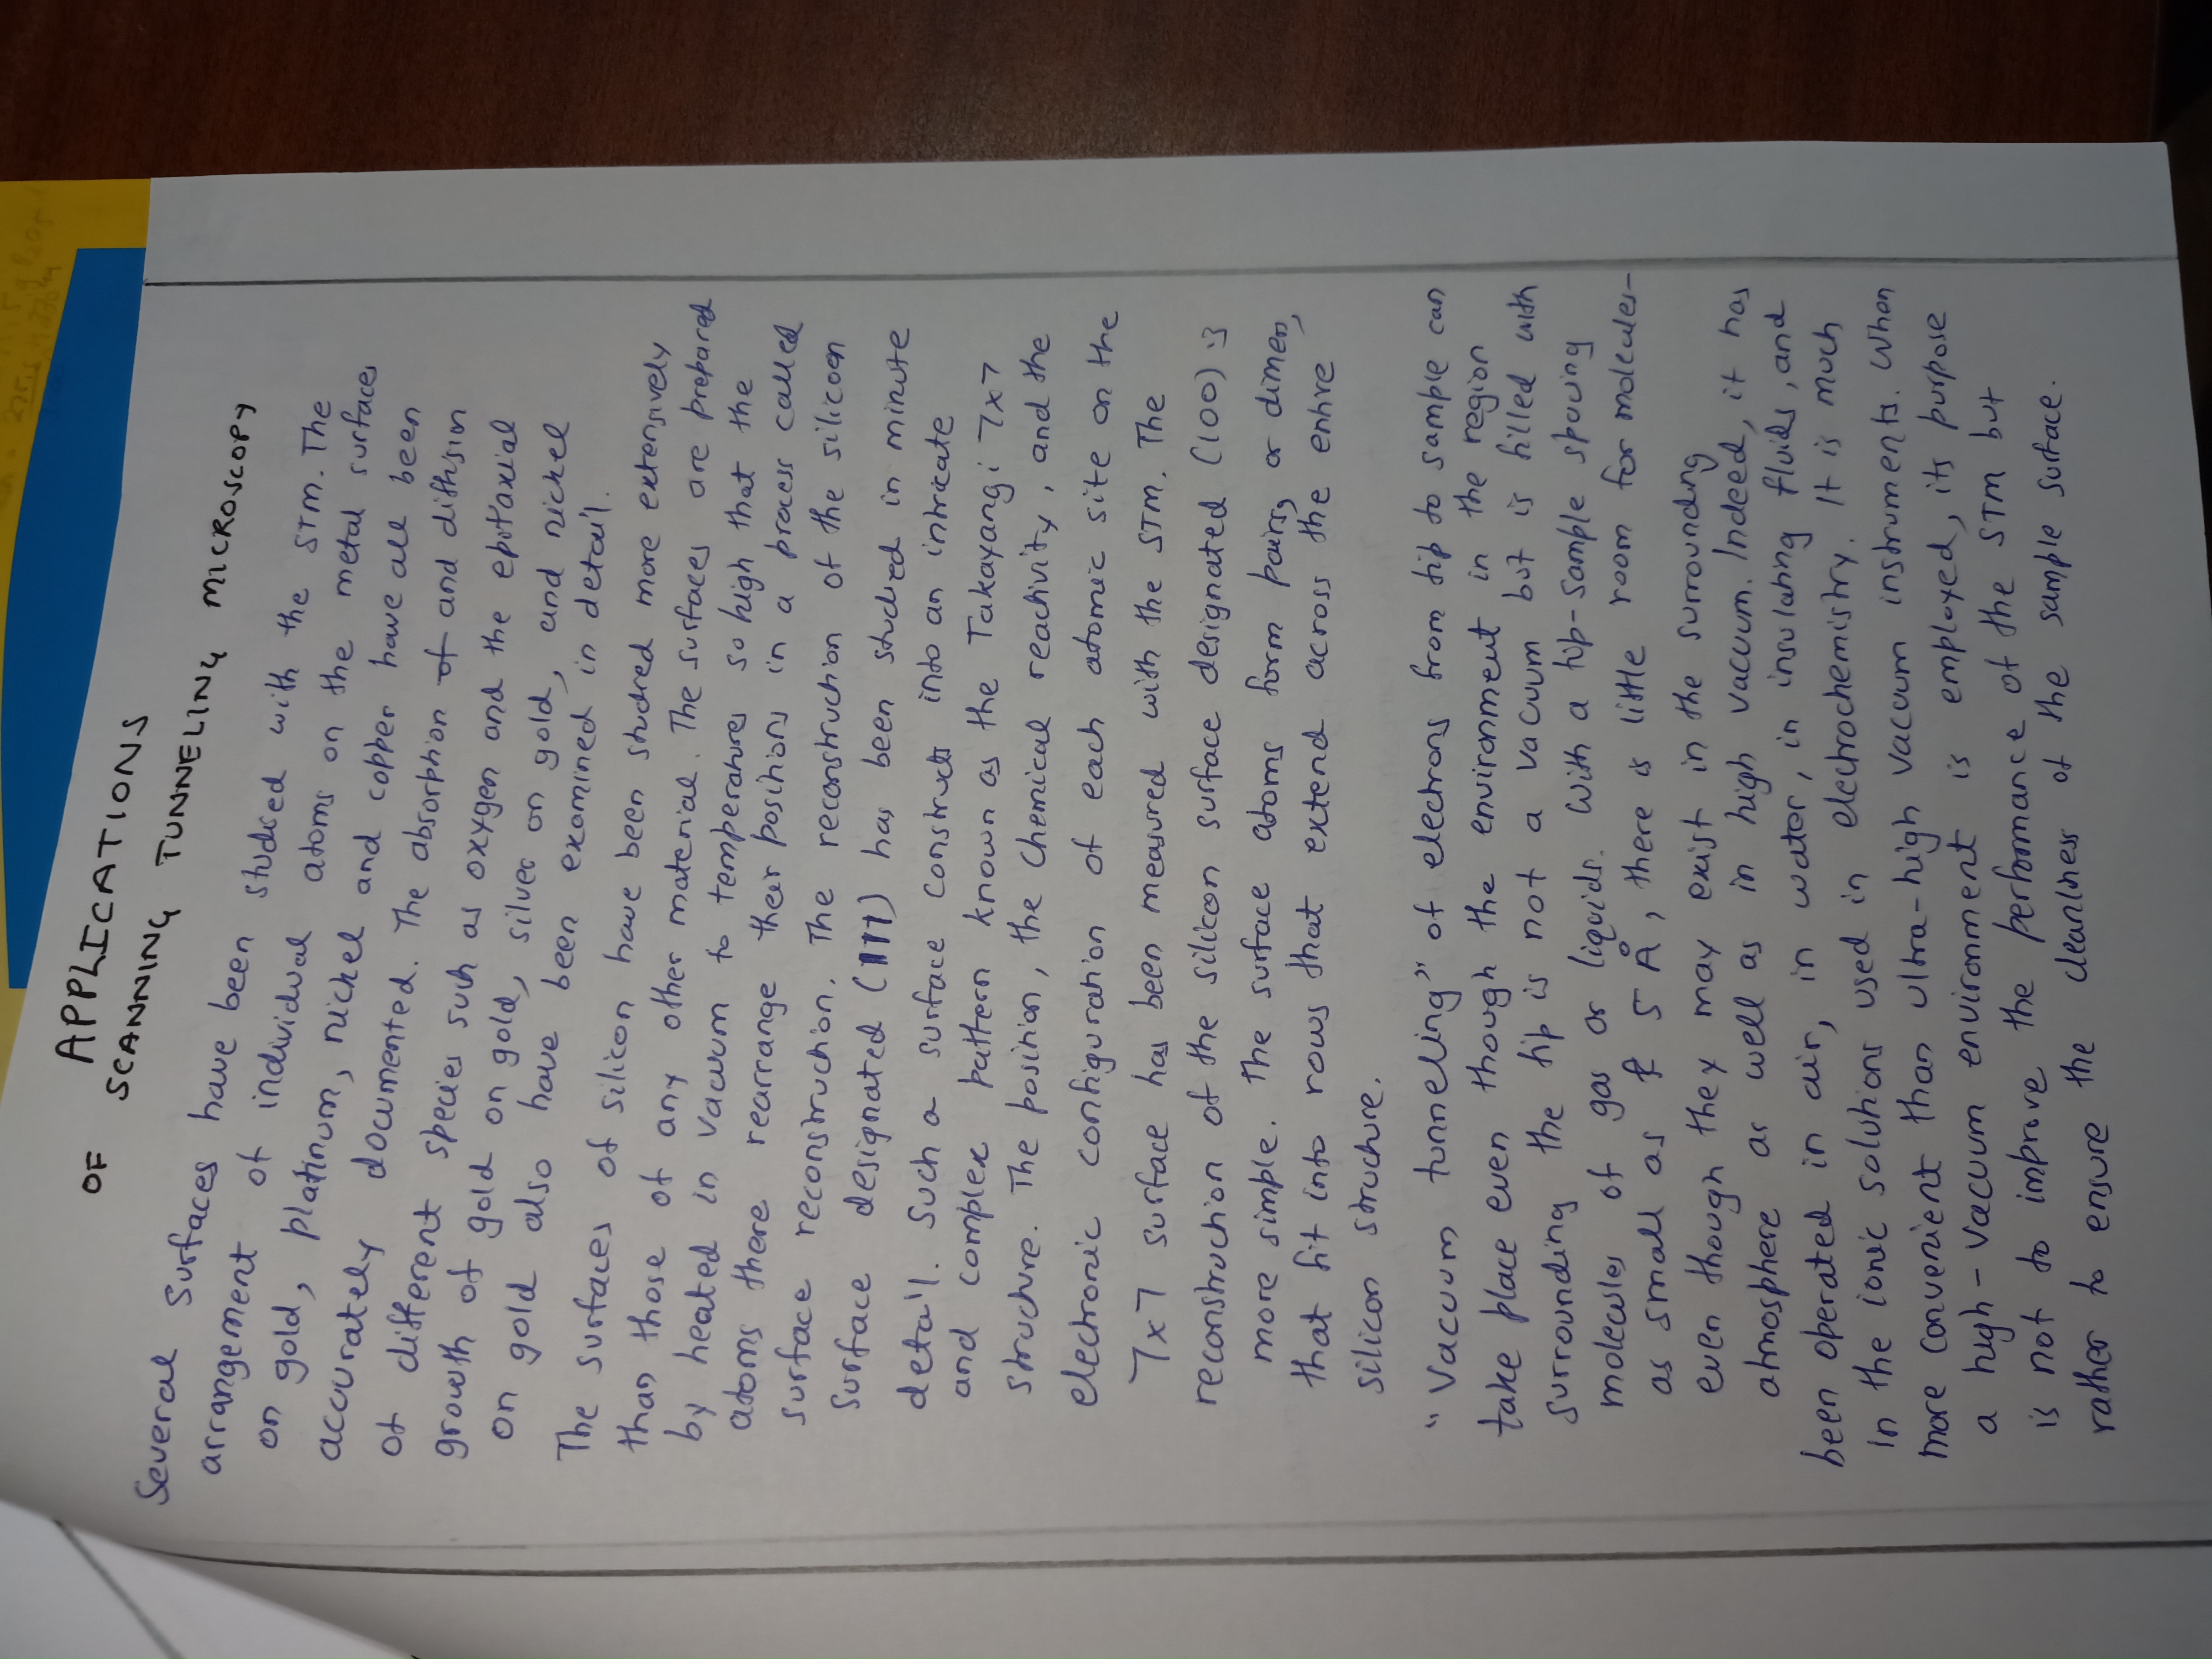 APPLICATIONS
OF SCANNING TUNNELING MICROSCOPY
Several Surfaces have been studied with the STM. The
arrangement of individual atoms on the metal surfaces
on gold, platinum, nickel and copper have all been
accurately documented. The absorption of and diffusion
of different species such as oxygen and the epitaxial
growth of gold on gold, silver on gold, and nickel
on gold also have been examined in detail.
The surfaces of silicon have been studied more extensively
than those of any other material. The surfaces are prepared
by heated in vacuum to temperatures so high that the
atoms there rearrange their positions in a process called
surface reconstruction. The reconstruction of the silicoen
Surface designated (111) has been studied in minute
detail. Such a surface constructs into an intricate
and complex pattern known as the Takayangi 7x7
structure. The position, the Chemical reactivity, and the
electronic configuration of each atomic site on the
7x7 surface has been measured with the STM. The
reconstruction of the silicon surface designated (100) is
more simple. The surface atoms form pairs, or dimers,
that fit into rows that extend across the entire
silicon structure.
"Vacuum tunneling" of electrons from tip to sample can
take place even though the environment in the region
surrounding the tip is not a vacuum but is filled with
molecules of gas or liquids. With a tip-sample spacing
as small as 5 Å, there is little room for molecules-
even though they may exist in the surrounding
atmosphere as well as in high vacuum. Indeed, it has
been operated in air, in water, in insulating fluids, and
in the ionic solutions used in electrochemistry. It is much
more convenient than ultra-high vacuum instruments. When
a high-vacuum environment is employed, its purpose
is not to improve the performance of the STM but
rather to ensure the cleanliness of the sample surface.